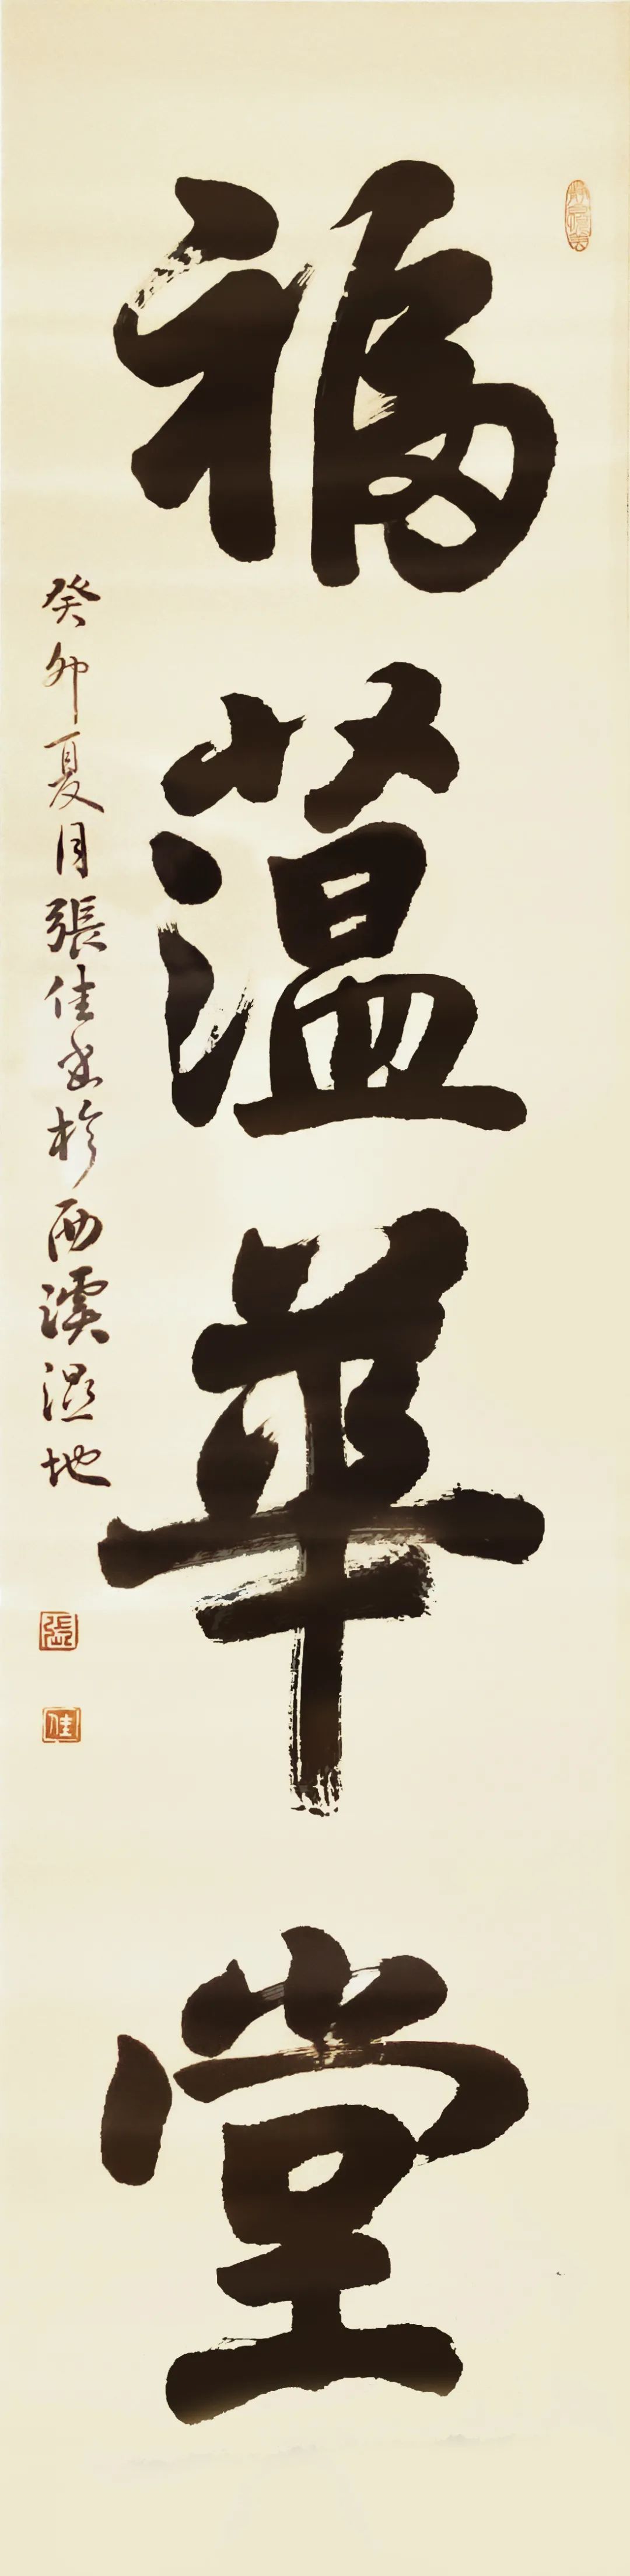 福蕰華堂
癸卯夏月張佳书於西溪濕地
張
佳